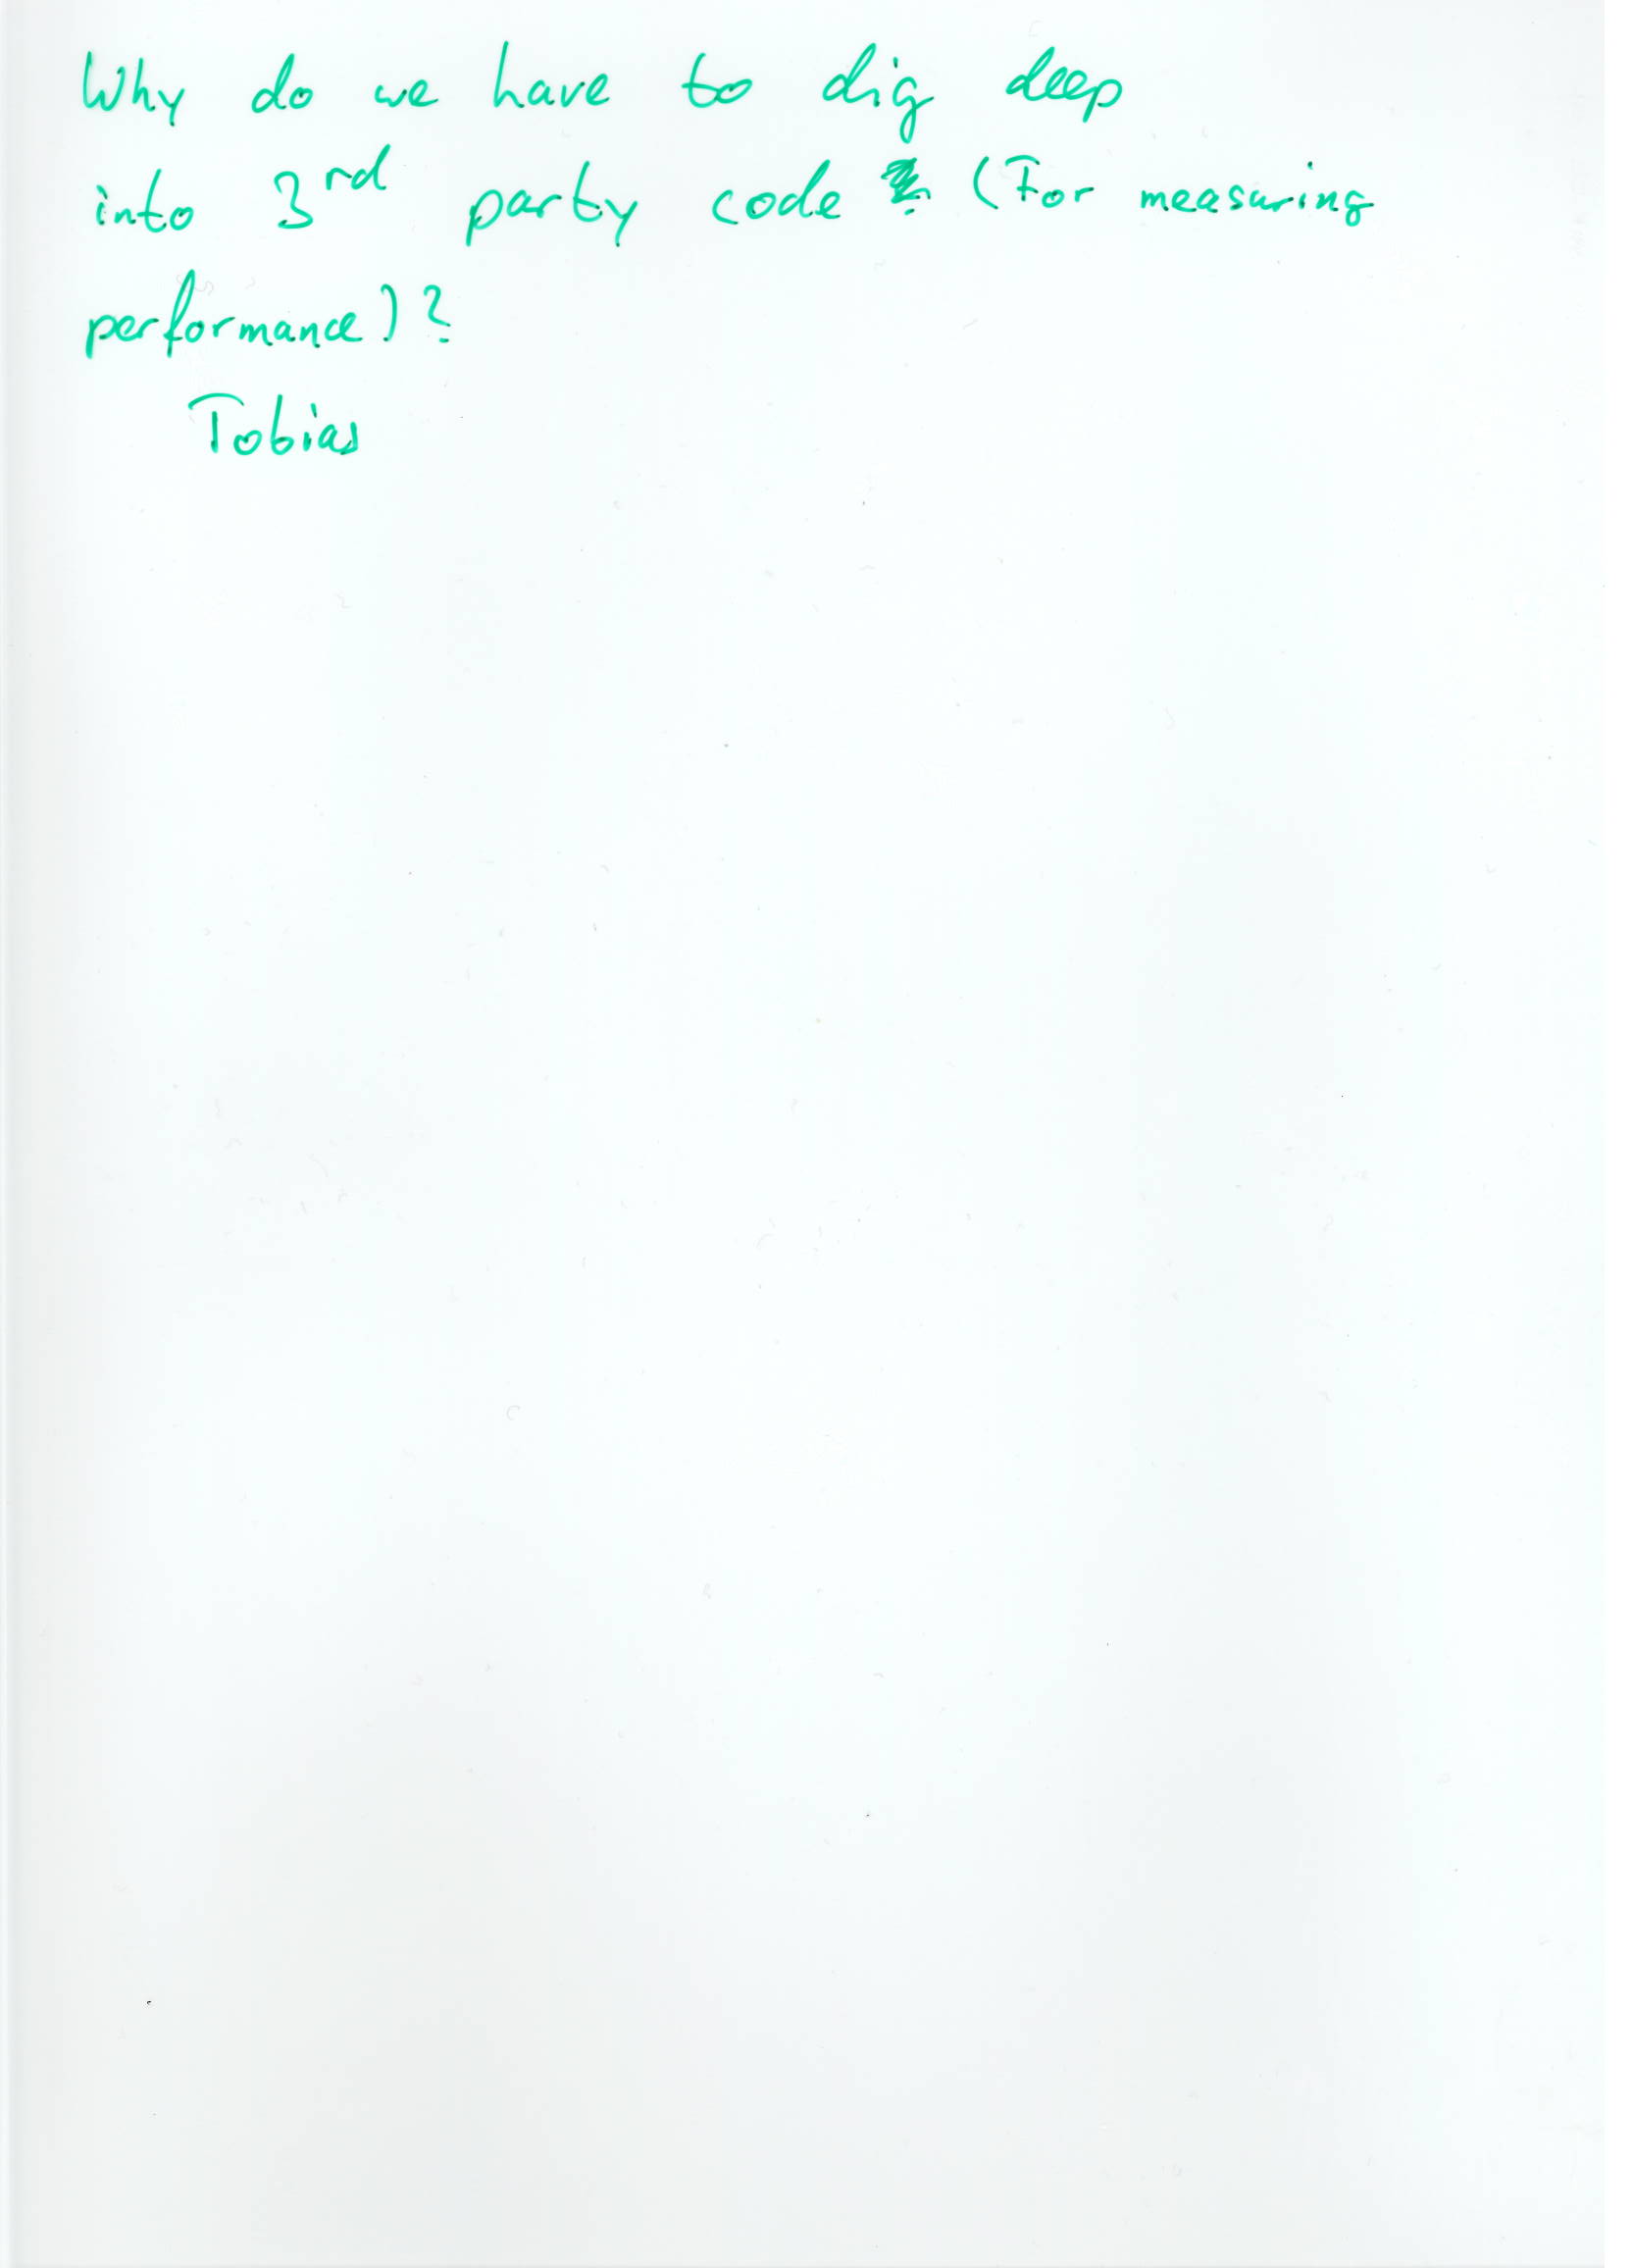 Why do we have to dig deep
into 3rd party code (For measuring
performance)?
Tobias